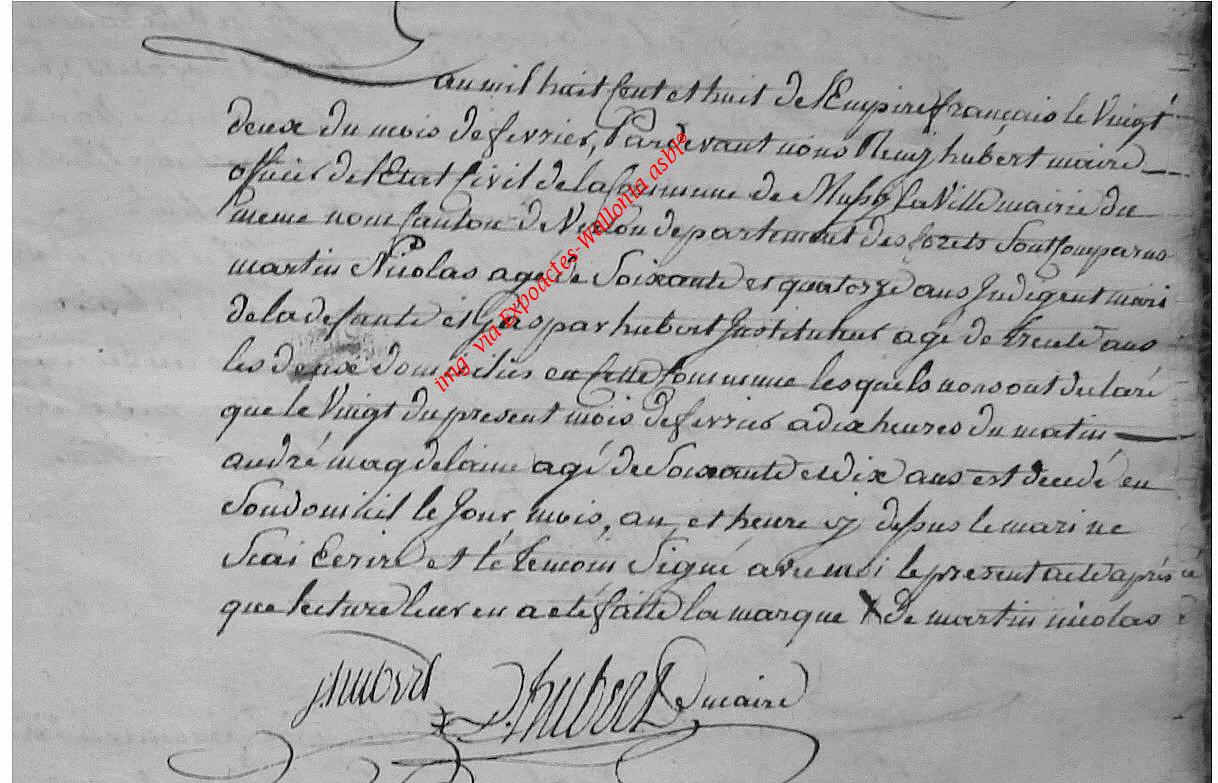 L'an mil huit cent et huit de l'Empire français le vingt
deux du mois de fevrier, Pardevant nous Remÿ hubert maire
officier de l'Etat Civil de la Commune de Mussÿ la Ville mairie du
meme nom Canton de Virton departement des forets Sont Comparus
martin Nicolas agé de Soixante et quatorze ans Indigent mari
de la defunte et Gaspar hubert Instituteur agé de trente ans
les deux domiciliés en Cette Commune lesquels nous ont declaré
que le Vingt du present mois de fevrier a dix heures du matin
andré magdelaine agé de Soixante et dix ans est decedé en
Son domicil le Jour, mois, an, et heure cÿ desus le mari ne
Scai Ecrire et le temoin Signé avec moi le present acte après
que lecture leur en a eté faitte la marque X De martin nicolas
hubert
R. hubert maire
img via Expoactes-Wallonia asbl©